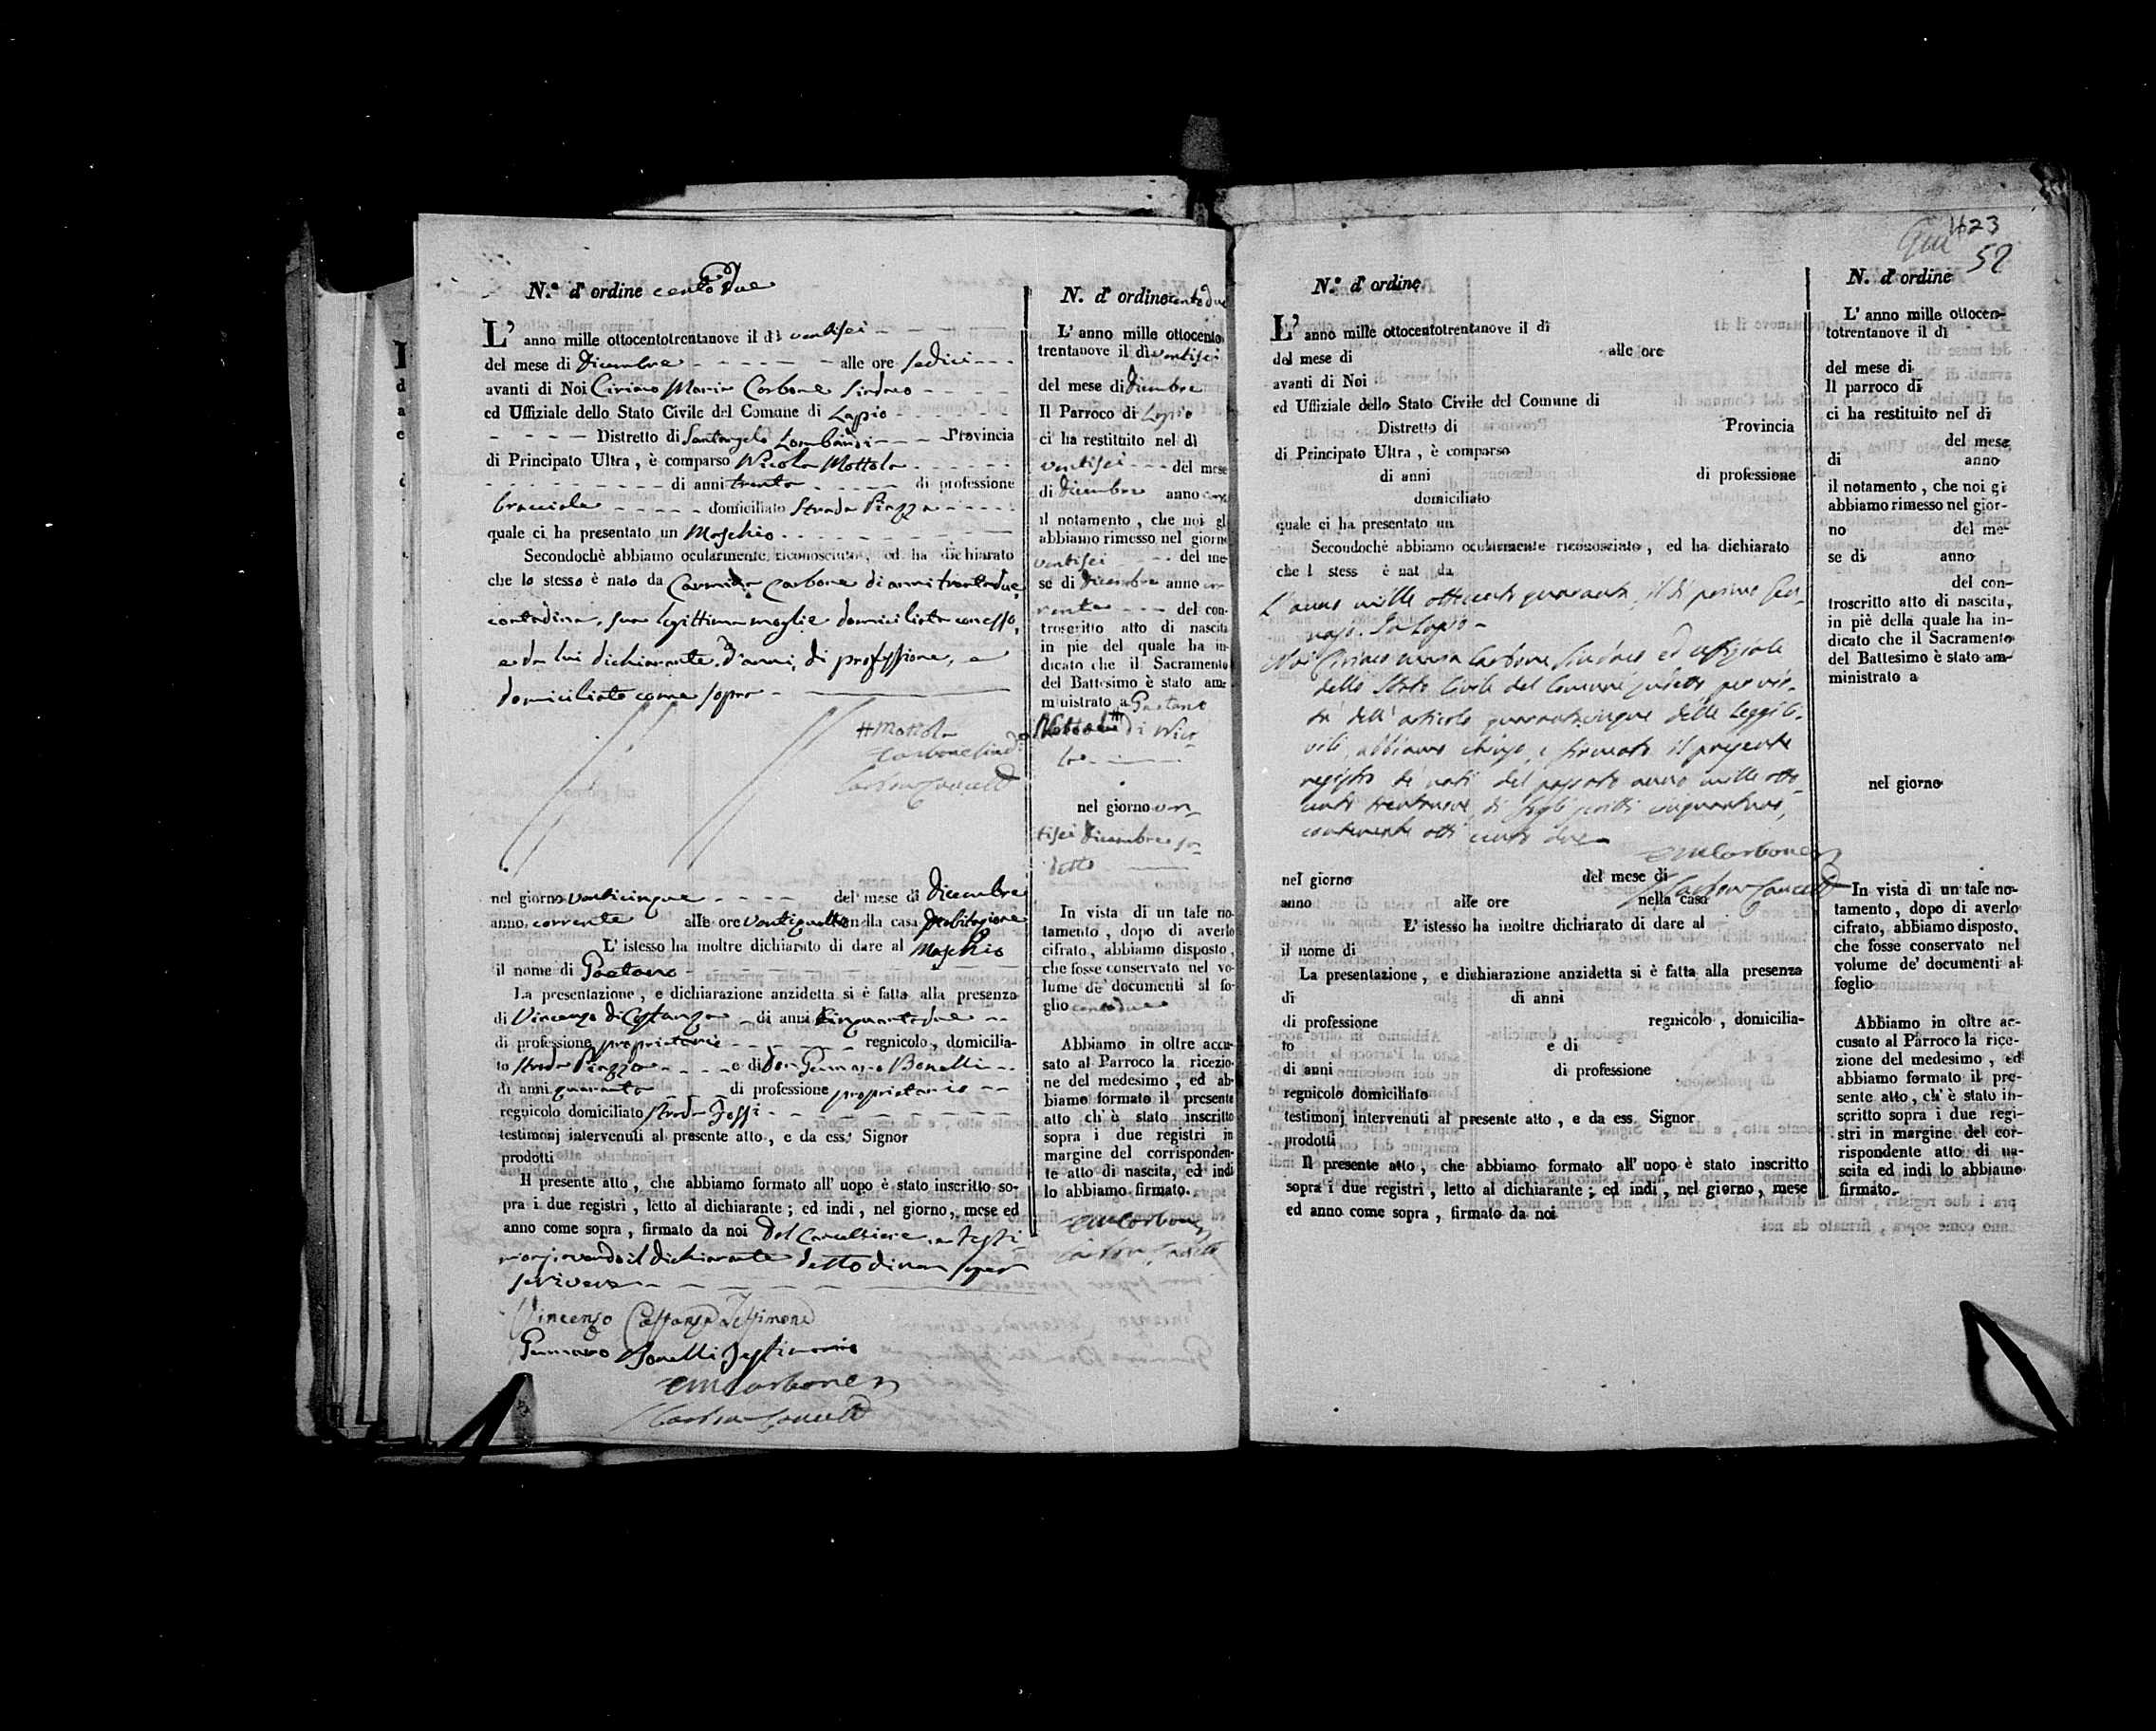 N.° d' ordine cento due
L' anno mille ottocentotrentanove il dì ventisei
del mese di Dicembre alle ore sedici
avanti di Noi Ciriaco Maria Carbone Sindaco
ed Uffiziale dello Stato Civile del Comune di Lapio
Distretto di Santangelo Lombardi Provincia
di Principato Ultra , è comparso Nicola Mottola
di anni trenta di professione
bracciale domiciliato Strada Piazza
quale ci ha presentato un Maschio
Secondochè abbiamo ocularmente riconosciuto , ed ha dichiarato
che lo stesso è nato da Carmina Carbone di anni trentadue
contadina, sua legittima moglie domiciliata con esso,
e da lui dichiarante, d'anni, di professione, e
domiciliato come sopra
# Mottola
Carbone Sind.
Carbone Cancell
nel giorno venticinque del mese di Dicembre
anno corrente alle ore ventiquattro nella casa d'abitazione
L' istesso ha inoltre dichiarato di dare al Maschio
il nome di Gaetano
La presentazione , e dichiarazione anzidetta si è fatta alla presenza
di Vincenzo di Costanzo di anni cinquantadue
di professione proprietario regnicolo , domicilia-
to strada Piazza e di Don Gennaro Bonelli
di anni quaranta di professione proprietario
regnicolo domiciliato strada Fossi
testimonj intervenuti al presente atto , e da ess. Signor
prodotti
Il presente atto , che abbiamo formato all' uopo è stato inscritto so-
pra i due registri , letto al dichiarante ; ed indi , nel giorno , mese ed
anno come sopra , firmato da noi dal Cancelliere, e testi-
monj avendo il dichiarante detto di non saper
scrivere
Vincenzo Costanzo Testimone
Gennaro Bonelli Testimonio
CMCarbone
Carbone Cancell
N. d' ordine cento due
L' anno mille ottocento
trentanove il dì ventisei
del mese di Dicembre
Il Parroco di Lapio
ci ha restituito nel dì
ventisei del mese
di Dicembre anno
il notamento , che noi gli
abbiamo rimesso nel giorno
ventisei del me-
se di Dicembre anno cor-
rente del con-
troscritto atto di nascita
in piè del quale ha in-
dicato che il Sacramento
del Battesimo è stato am-
ministrato a Gaetano
Mottola # di Nico-
la
nel giorno ven-
tisei Dicembre su-
detto
In vista di un tale no-
tamento , dopo di averlo
cifrato , abbiamo disposto ,
che fosse conservato nel vo-
lume de' documenti al fo-
glio centodue
Abbiamo in oltre accu-
sato al Parroco la ricezio-
ne del medesimo , ed ab-
biamo formato il presente
atto ch' è stato inscritto
sopra i due registri in
margine del corrisponden-
te atto di nascita, ed indi
lo abbiamo firmato.
CMCarbone
Carbone Cancell
423
52
N.° d' ordine
L' anno mille ottocentotrentanove il dì
del mese di alle ore
avanti di Noi
ed Uffiziale dello Stato Civile del Comune di
Distretto di Provincia
di Principato Ultra , è comparso
di anni di professione
domiciliato
quale ci ha presentato un
Secondochè abbiamo ocularmente riconosciuto , ed ha dichiarato
che l stess è nat da
L'anno mille ottocento quaranta, il dì primo Gen-
najo. In Lapio
Noi Ciriaco Maria Carbone Sindaco ed uffiziale
dello Stato Civile del Comune sudetto, per vir-
tù dell'articolo quarantacinque delle Leggi Ci-
vili, abbiamo chiuso, e firmato il presente
registro de' nati del passato anno mille otto-
cento trentanove, di fogli scritti cinquantuno,
contenente atti cento due
CMCarbone
Carbone Cancell
nel giorno del mese di
anno alle ore nella casa
L' istesso ha inoltre dichiarato di dare al
il nome di
La presentazione , e dichiarazione anzidetta si è fatta alla presenza
di di anni
di professione regnicolo , domicilia-
to e di
di anni di professione
regnicolo domiciliato
testimonj intervenuti al presente atto , e da ess. Signor
prodotti
Il presente atto , che abbiamo formato all' uopo è stato inscritto
sopra i due registri , letto al dichiarante ; ed indi , nel giorno , mese
ed anno come sopra , firmato da noi
N. d' ordine
L' anno mille ottocen-
totrentanove il dì
del mese di
Il parroco di
ci ha restituito nel dì
del mese
di anno
il notamento , che noi gi
abbiamo rimesso nel gior-
no del me-
se di anno
del con-
troscritto atto di nascita,
in piè della quale ha in-
dicato che il Sacramento
del Battesimo è stato am-
ministrato a
nel giorno
In vista di un tale no-
tamento , dopo di averlo
cifrato, abbiamo disposto,
che fosse conservato nel
volume de' documenti al
foglio
Abbiamo in oltre ac-
cusato al Parroco la rice-
zione del medesimo , ed
abbiamo formato il pre-
sente atto , ch' è stato in-
scritto sopra i due regi-
stri in margine del cor-
rispondente atto di na-
scita ed indi lo abbiamo
firmato.